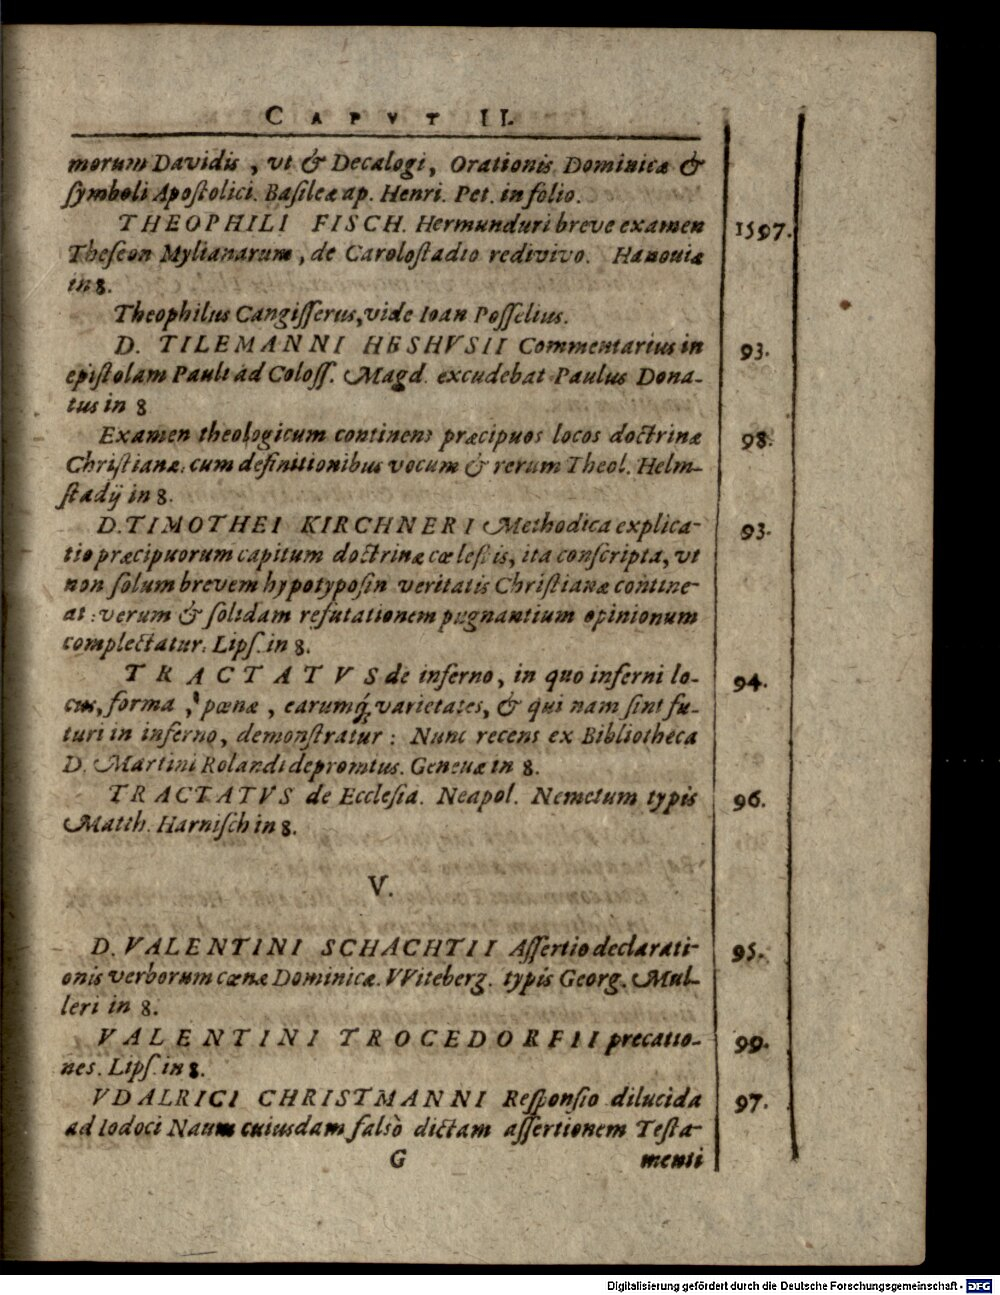 CAPVT II.
morum Davidis, vt & Decalogi, Orationis Dominicæ &
ſymboli Apoſtolici. Baſileæ ap. Henri. Pet. in folio.
THEOPHILI FISCH. Hermunduri breve examen 1597.
Theſeon Mylianarum, de Caroloſtadio redivivo. Hanouiæ
in 8.
Theophilus Cangiſſerus, vide Ioan Poſſelius.
D. TILEMANNI HESHVSII Commentarius in 93.
epiſtolam Pauli ad Coloſſ. Magd. excudebat Paulus Dona-
tus in 8
Examen theologicum continens præcipuos locos doctrinæ 98.
Chriſtianæ, cum definitionibus vocum & rerum Theol. Helm-
ſtadij in 8.
D. TIMOTHEI KIRCHNERI Methodica explica- 93.
tio præcipuorum capitum doctrinæ cœleſtis, ita conſcripta, vt
non ſolum brevem hypotypoſin veritatis Chriſtianæ contine-
at: verum & ſolidam refutationem pugnantium opinionum
complectatur. Lipſ. in 8.
TRACTATVS de inferno, in quo inferni lo- 94.
cus, forma, pœnæ, earumq́; varietates, & qui nam ſint fu-
turi in inferno, demonſtratur: Nunc recens ex Bibliotheca
D. Martini Rolandi depromtus. Geneuæ in 8.
TRACTATVS de Eccleſia. Neapol. Nemetum typis 96.
Matth. Harniſch in 8.
V.
D. VALENTINI SCHACHTII Aſſertio declarati- 95.
onis verborum cœnæ Dominicæ. VViteberg. typis Georg. Mul-
leri in 8.
VALENTINI TROCEDORFII precatio- 99.
nes. Lipſ. in 8.
VDALRICI CHRISTMANNI Reſponſio dilucida 97.
ad Iodoci Naum cuiusdam falsò dictam aſſertionem Teſta-
G menti
Digitalisierung gefördert durch die Deutsche Forschungsgemeinschaft - DFG